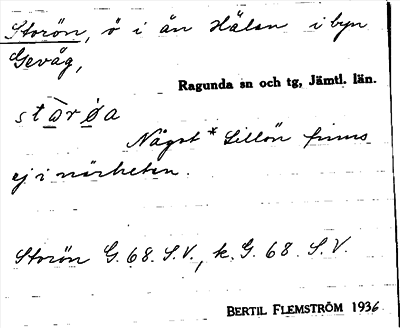 Storön, ö i ån Hälan i byn
Gevåg,
Ragunda sn och tg, Jämtl. län.
stòrǿa
Något *Lillön finns
ej i närheten.
Storön G. 68. S.V., k. G. 68 S.V.
BERTIL FLEMSTRÖM 1936